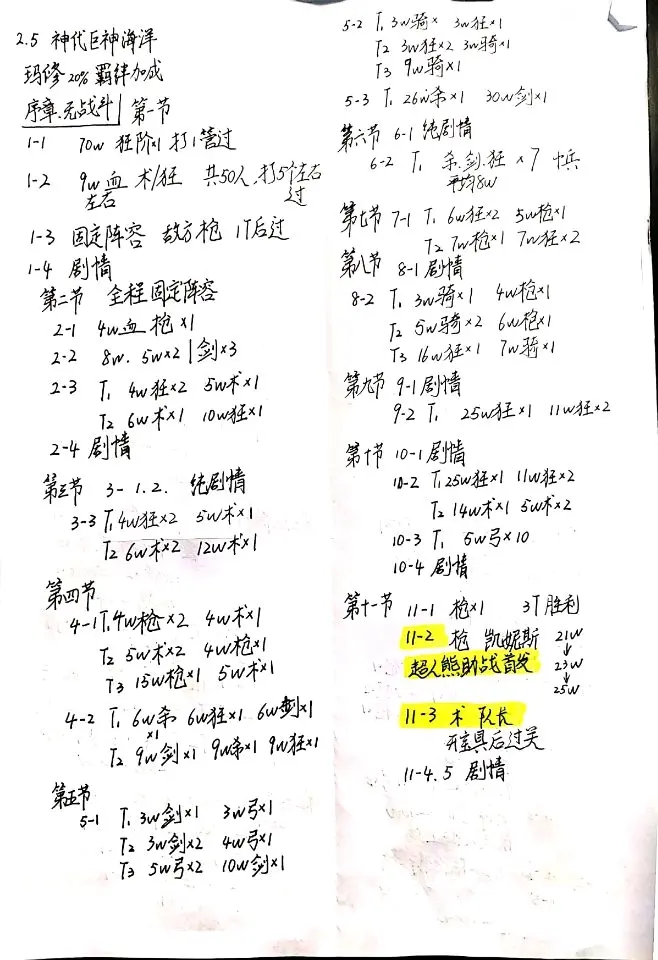 2.5 神代巨神海洋
玛修 20% 羁绊加成
序章.无战斗 | 第一节
1-1 70w 狂阶×1 打1管过
1-2 9w血 术/狂 共50人.打5个左右
左右 过
1-3 固定阵容 敌方枪 1T后过
1-4 剧情
第二节 全程固定阵容
2-1 4w血 枪×1
2-2 8w. 5w×2 | 剑×3
2-3 T1 4w狂×2 5w术×1
T2 6w术×1 10w狂×1
2-4 剧情
第三节 3-1.2. 纯剧情
3-3 T1 4w狂×2 5w术×1
T2 6w术×2 12w术×1
第四节
4-1 T1 4w枪×2 4w术×1
T2 5w术×2 4w枪×1
T3 15w枪×1 5w术×1
4-2 T1 6w杀×1 6w狂×1 6w剑×1
T2 9w剑×1 9w杀×1 9w狂×1
第五节
5-1 T1 3w剑×1 3w弓×1
T2 3w剑×2 4w弓×1
T3 5w弓×2 10w剑×1
5-2 T1 3w骑× 3w狂×1
T2 3w狂×2 3w骑×1
T3 9w骑×1
5-3 T1 26w杀×1 30w剑×1
第六节 6-1 纯剧情
6-2 T1 杀.剑.狂 ×7 小兵
平均8w
第七节 7-1 T1 6w狂×2 5w枪×1
T2 7w枪×1 7w狂×2
第八节 8-1 剧情
8-2 T1 3w骑×1 4w枪×1
T2 5w骑×2 6w枪×1
T3 16w狂×1 7w骑×1
第九节 9-1 剧情
9-2 T1 25w狂×1 11w狂×2
第十节 10-1 剧情
10-2 T1 25w狂×1 11w狂×2
T2 14w术×1 5w术×2
10-3 T1 5w弓×10
10-4 剧情
第十一节 11-1 枪×1 3T胜利
11-2 枪 凯妮斯 21w
↓
超人熊助战首发 23w
↓
25w
11-3 术 队长
开宝具后过关
11-4.5 剧情